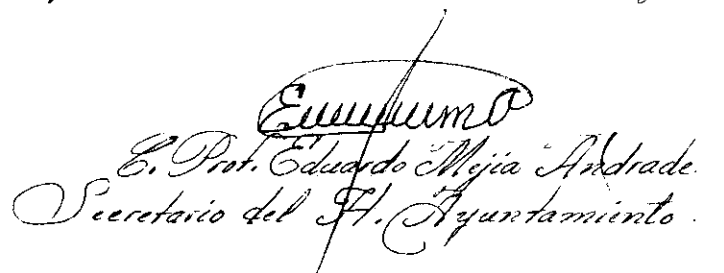 C. Prof. Eduardo Mejia Andrade.
Secretario del H. Ayuntamiento.